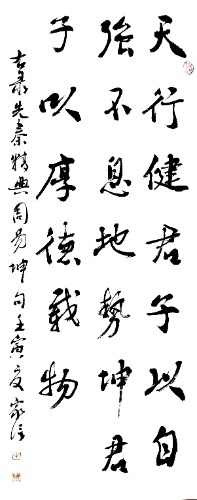 天行健君子以自
強不息地勢坤君
子以厚德載物
古录先秦精典周易坤句壬寅夏家信